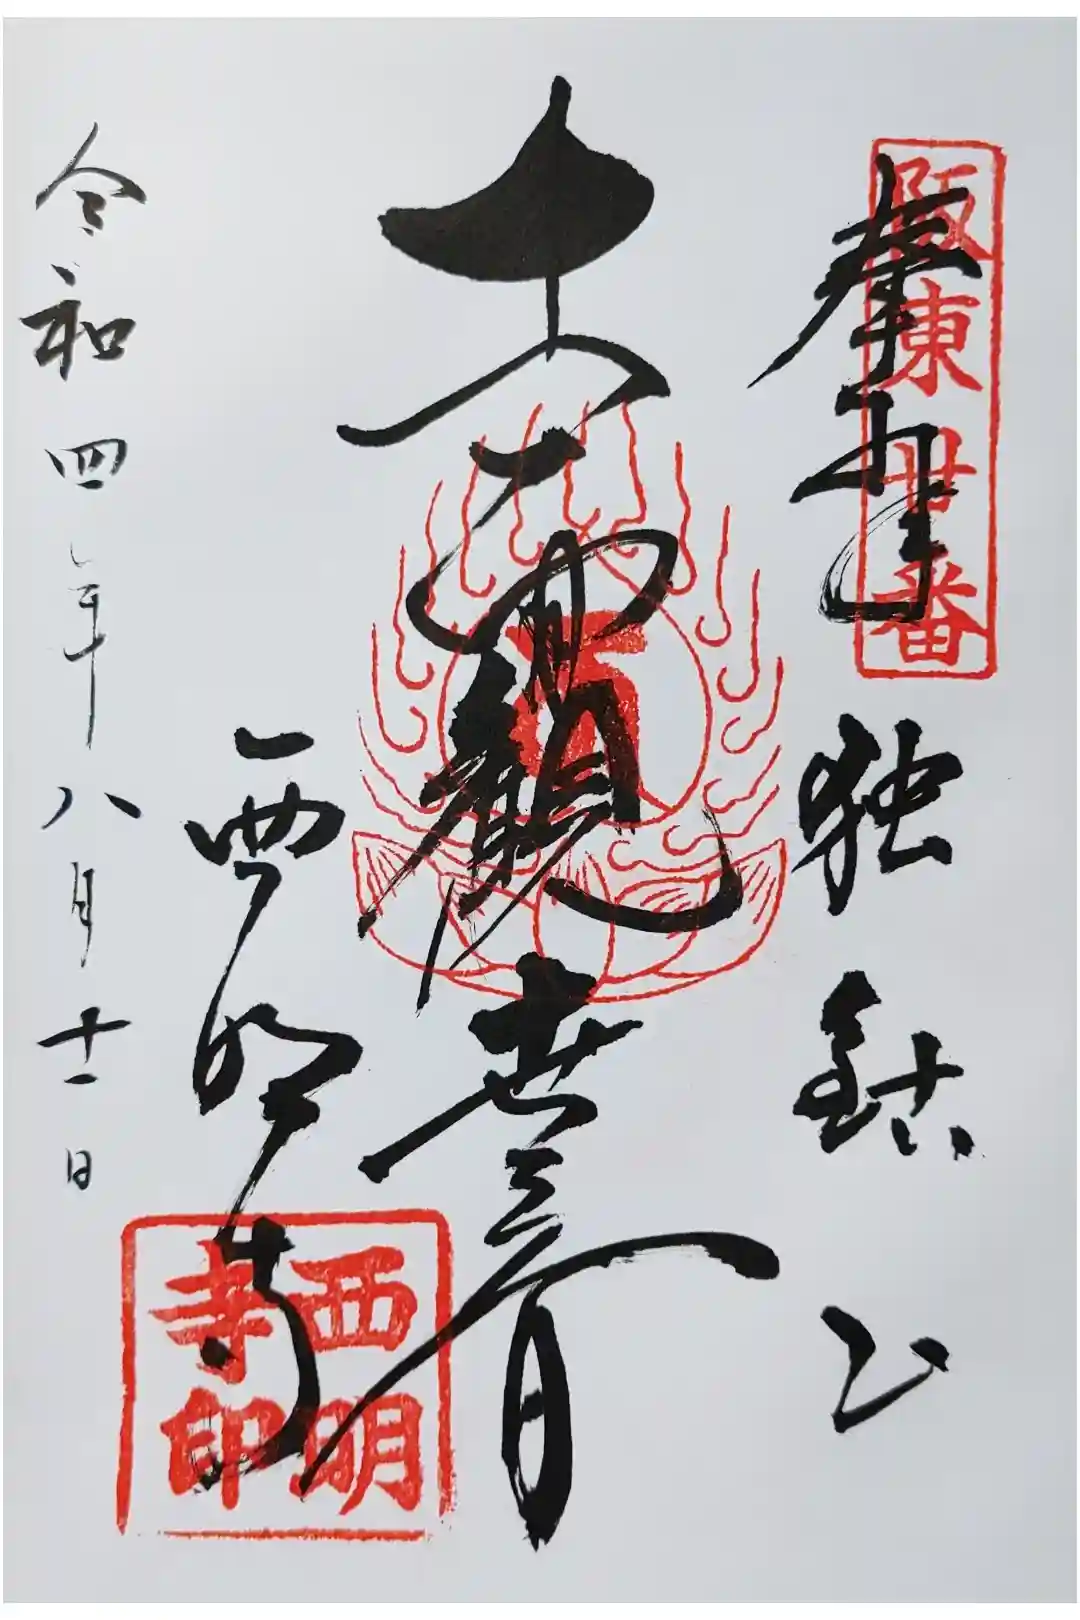 阪東廿番
奉拝
独鈷山
十一面觀世音
西明寺
西明寺印
令和四年八月十一日